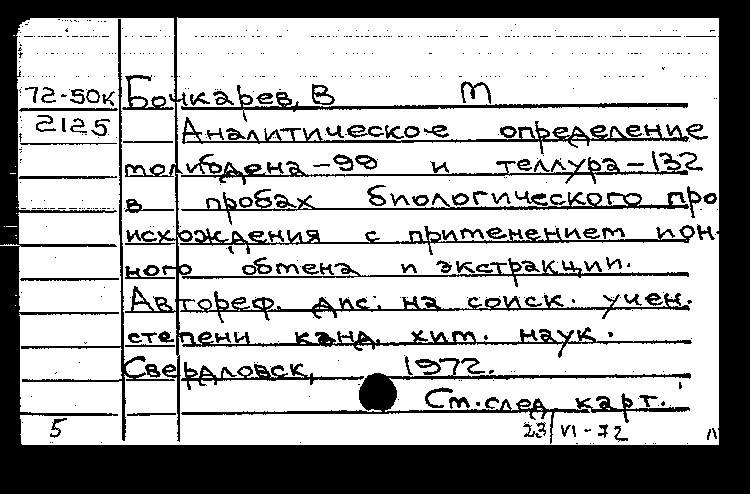 72-50к Бочкарев, В М
2125 Аналитическое определение
молибдена-99 и теллура-132
в пробах биологического про
исхождения с применением ион-
ного обмена и экстракции.
Автореф. дис. на соиск. учен.
степени канд. хим. наук.
Свердловск, 1972.
См.след. карт.
5 23/VI-72